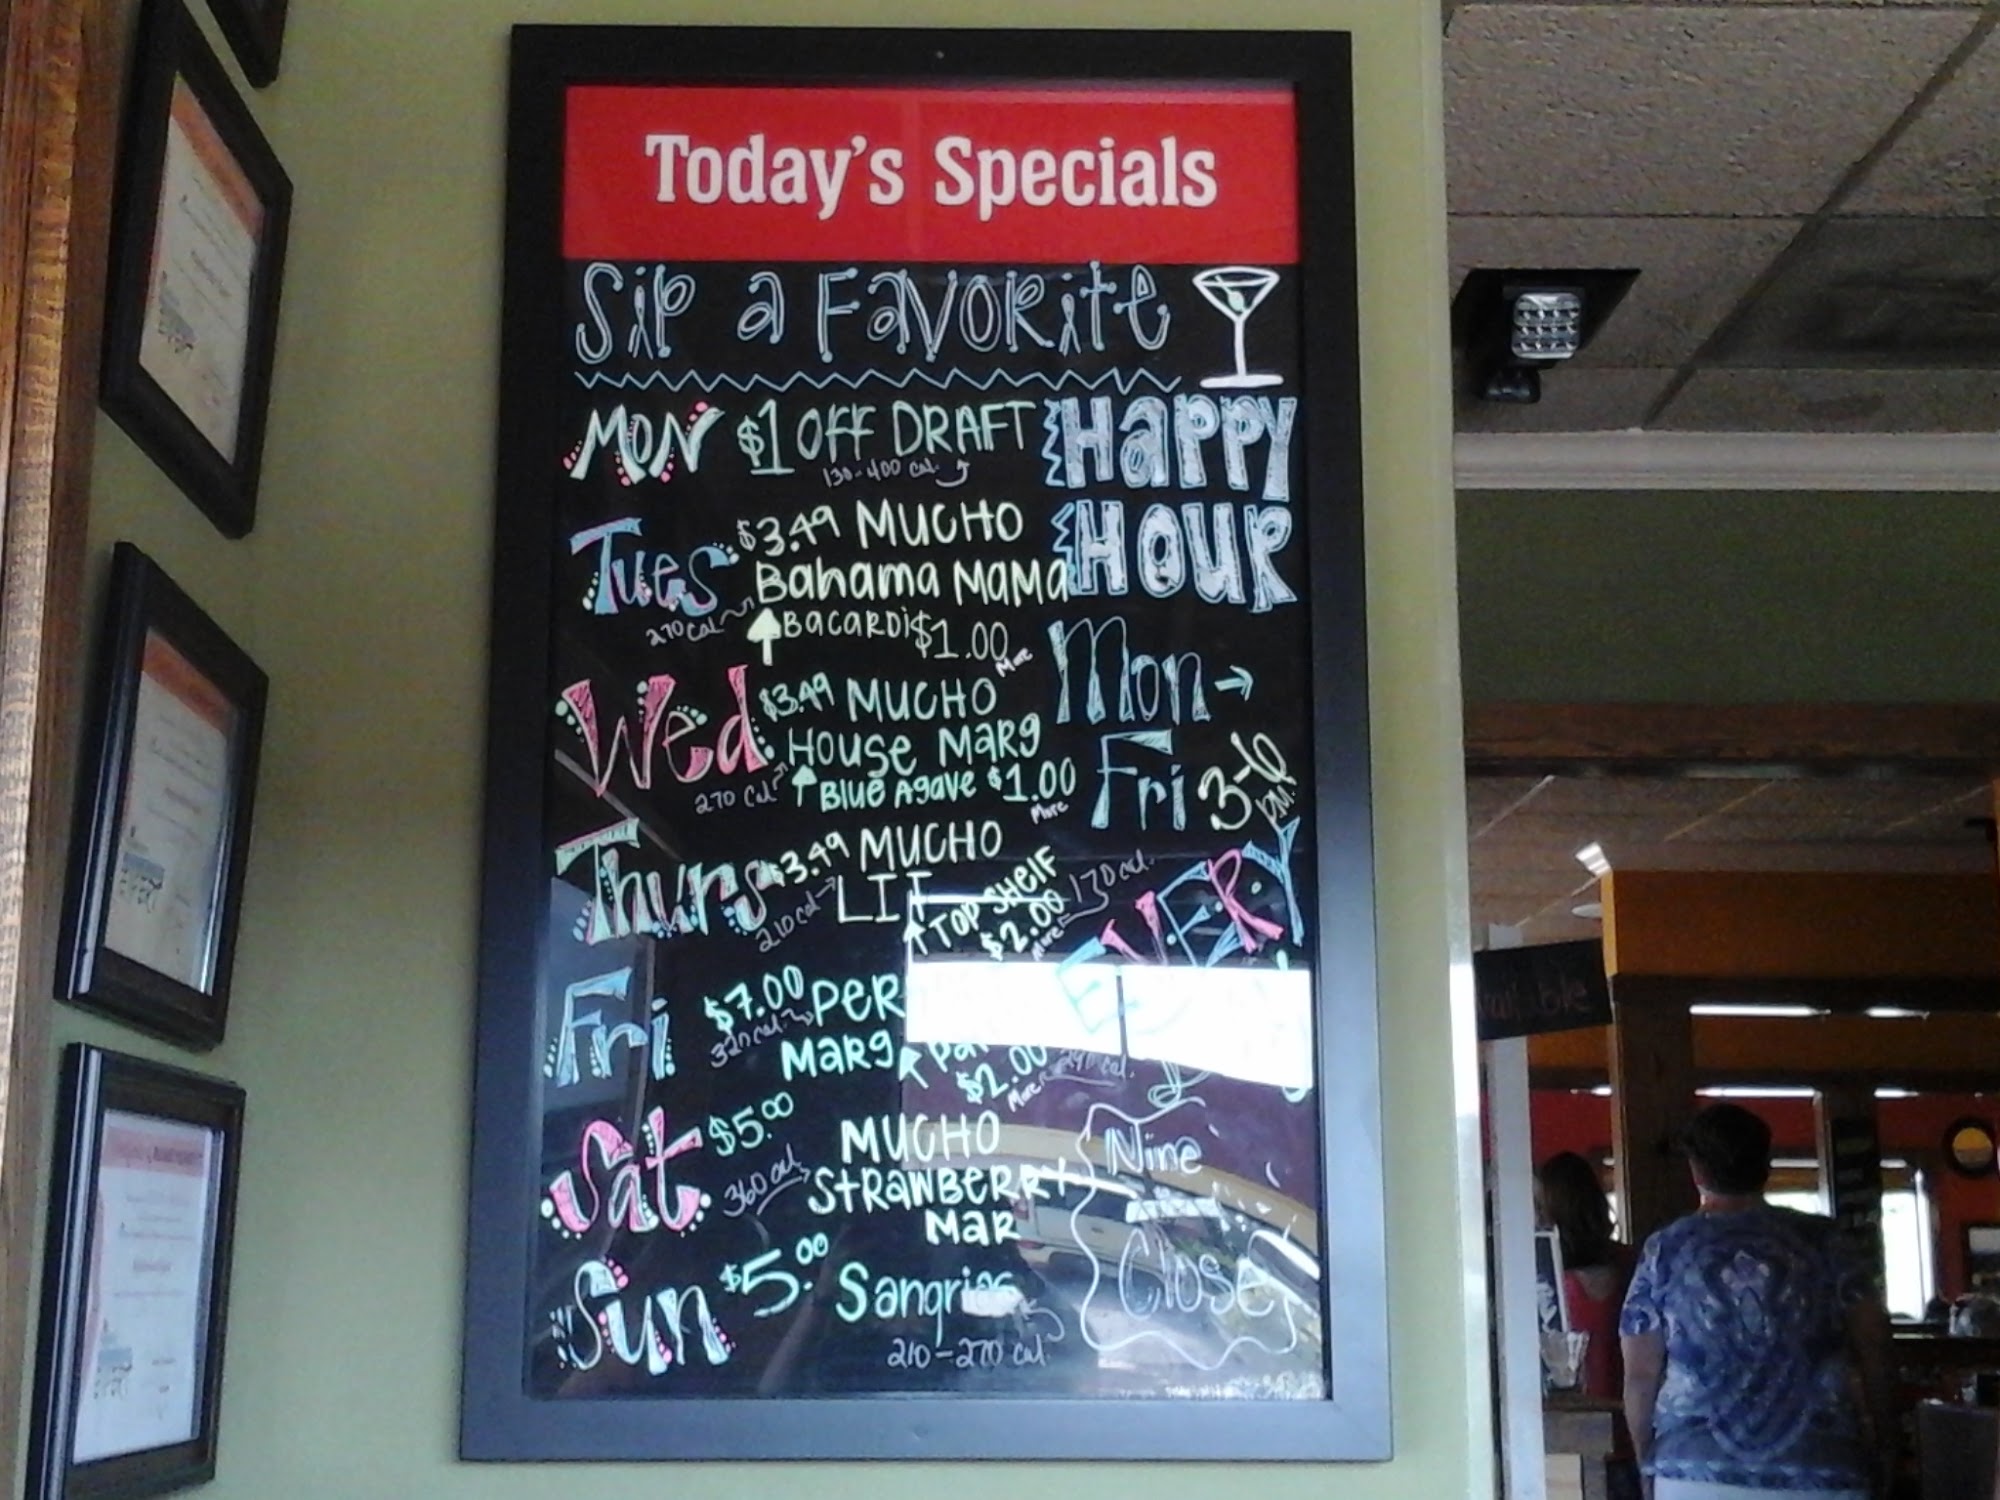 Today's Specials
Sip a Favorite
Mon $1 off DRAFT
130-400 cal.
Tues $3.49 MUCHO
Bahama Mama
270 cal
Bacardi $1.00
More
Wed $3.49 MUCHO
House Marg
270 cal
Blue Agave $1.00
More
Thurs $3.49 MUCHO
LIT
210 cal
TOP SHELF
$2.00
More
170 cal.
Fri $7.00 PER
320 cal.
Marg
$2.00
More
Sat $5.00 MUCHO
360 cal.
STRAWBERRY
MAR
Sun $5.00 Sangrias
210-270 cal.
Happy
Hour
Mon →
Fri 3-6
P.M.
EVERY
Nine
Close